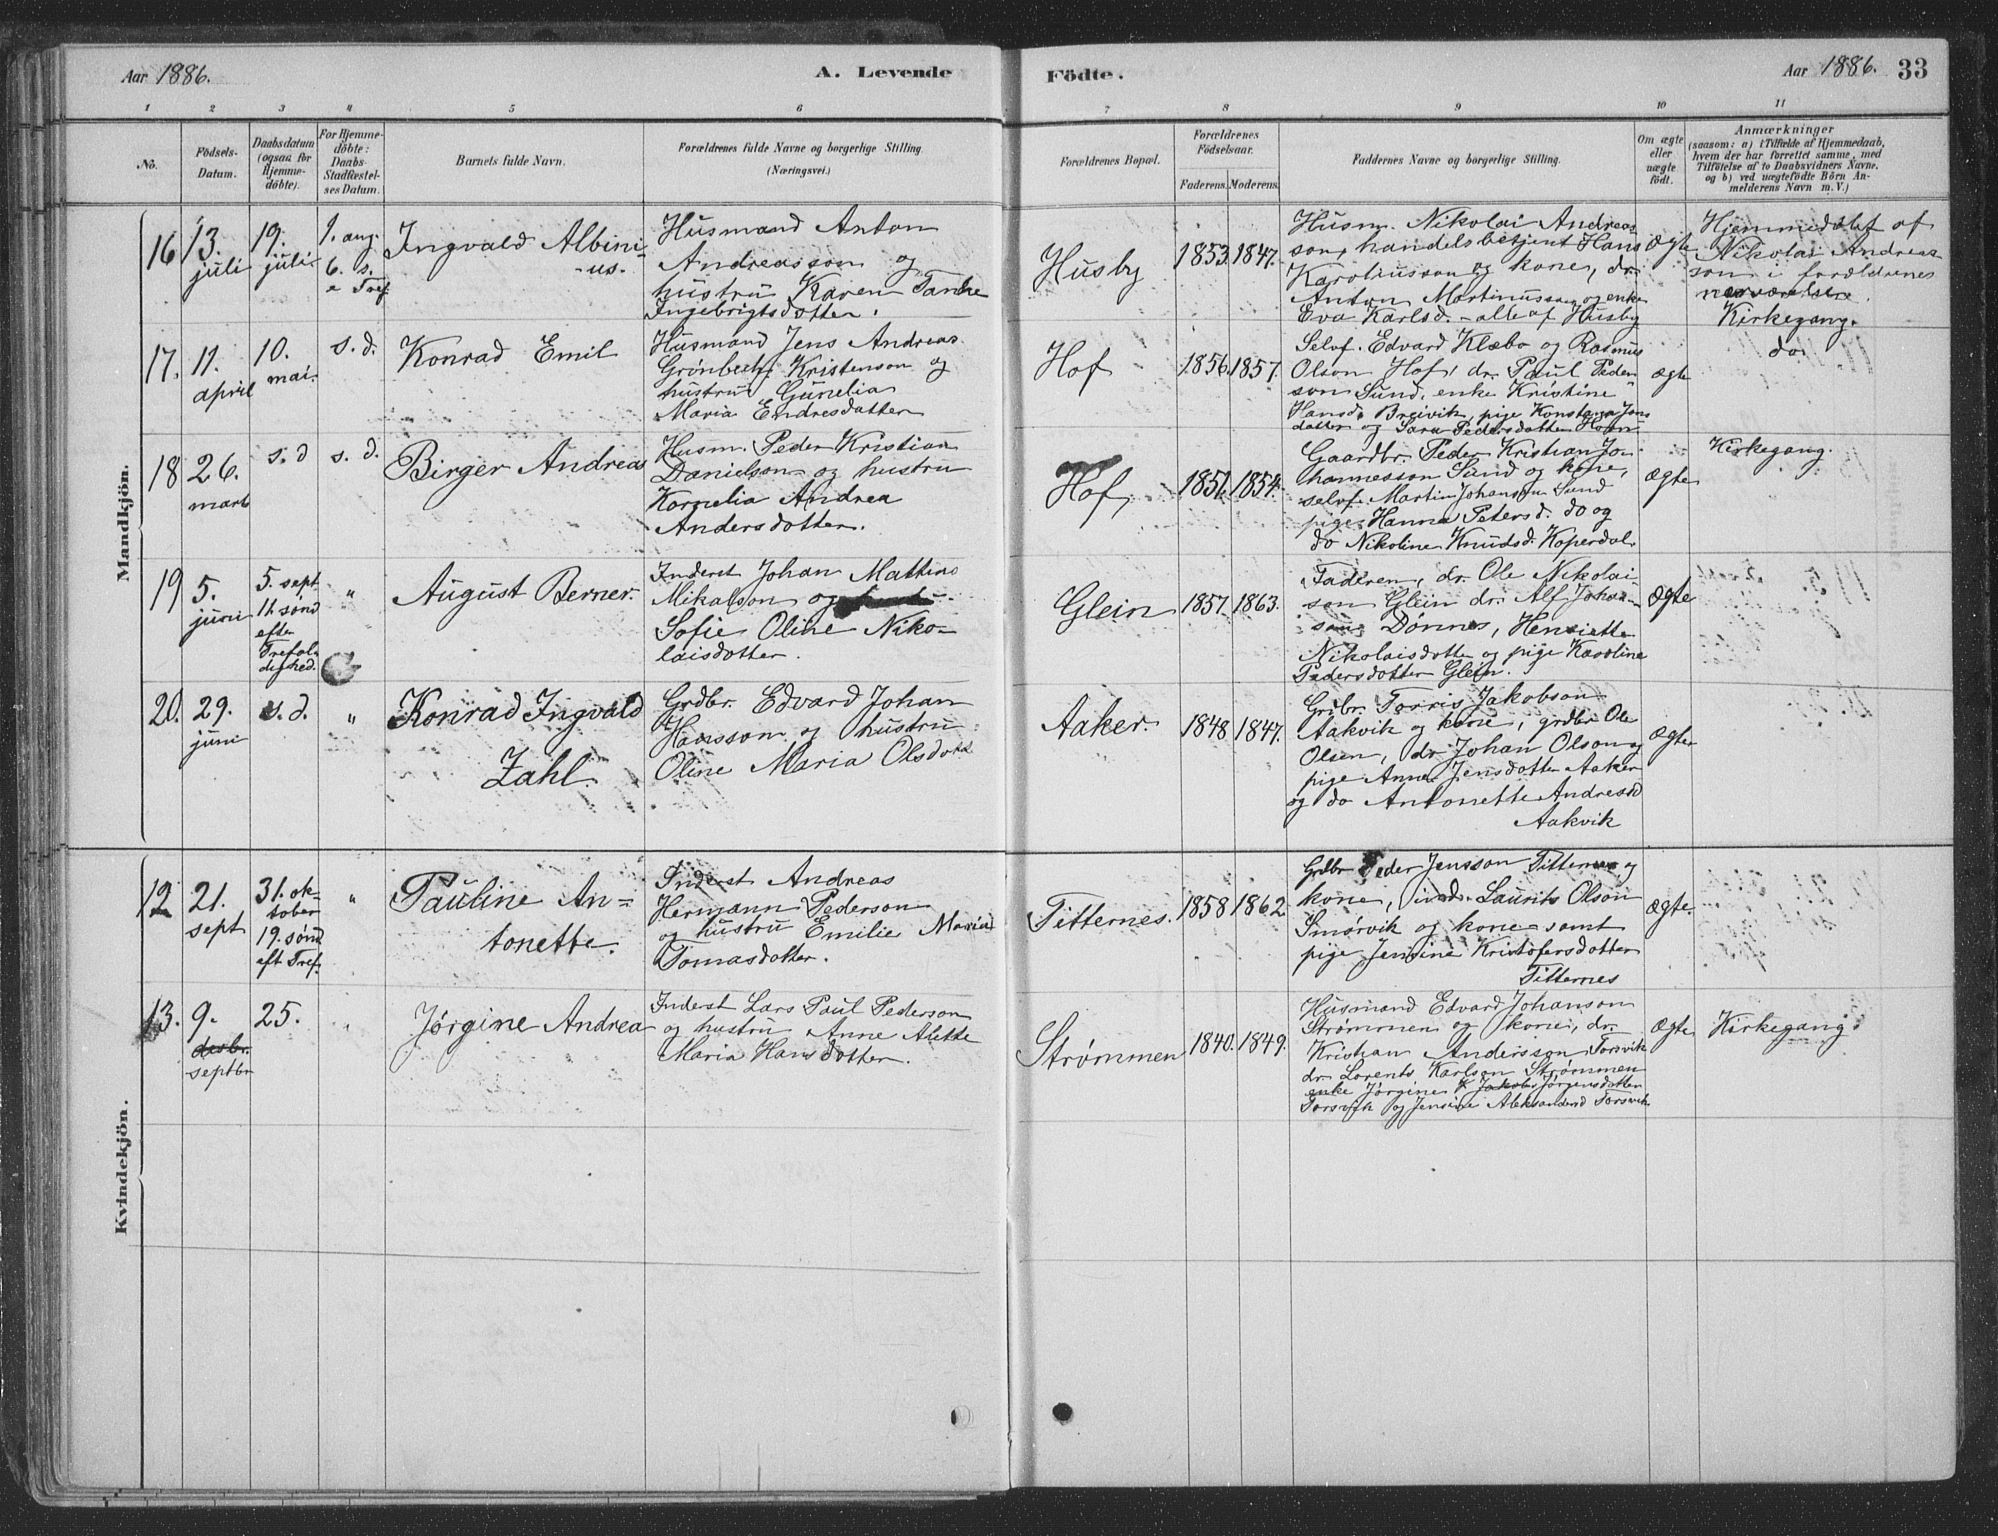 Aar 1886.
A. Levende
Födte.
Aar 1886. 33
1 2 3 4 5 6 7 8 9 10 11
No.
Födsels-
Datum.
Daabsdatum
(ogsaa for
Hjemme-
döbte).
For Hjemme-
döbte:
Daabs-
Stadfæstel-
ses Datum.
Barnets fulde Navn.
Forældrenes fulde Navne og borgerlige Stilling.
(Næringsvei.)
Forældrenes Bopæl.
Forældrenes
Födselsaar.
Faderens. Moderens.
Faddernes Navne og borgerlige Stilling.
Om ægte
eller
uægte
födt.
Anmærkninger
(saasom: a) i Tilfælde af Hjemmedaab,
hvem der har forrettet samme, med
Tilföielse af to Daabsvidners Navne,
og b) ved uægtefödte Börn An-
melderens Navn m. V.)
Mandkjön.
16
13.
juli
19.
juli
1. aug.
6. s.
e Tref
Ingvald Albini-
us.
Husmand Anton
Andreasson og
hustru Karen Tanke
Ingebrigtsdotter.
Husby
1853. 1847.
Husm. Nikolai Andreas
son, handelsbetjent Hans
Karoliusson og kone, dr.
Anton Martinusson og enke
Eva Karlsd. - alle af Husby
Ægte
Hjemmedøbt af
Nikolai Andreas
son i forældrenes
nærværelse.
Kirkegang.
17.
11.
april
10.
mai.
s. d.
Konrad Emil
Husmand Jens Andreas
Grønbech Kristenson og
hustru Gunelia
Maria Endresdatter
Hof
1856. 1857.
Selvf. Edvard Klæbo og Rasmus
Olson Hof, dr. Paul Peder
son Sund, enke Kristine
Hansd. Breivik, pige Konstanza Jens
datter og Sara Pedersdotter
ægte
do.
18
26.
marts
s. d
s. d.
Birger Andreas
Husm. Peder Kristian
Danielson og hustru
Kornelia Andrea
Andersdotter.
Hof,
1851. 1854.
Gaardbr. Peder Kristian Jo-
hannesson Sund og kone,
selvf. Martin Johanson Sund
pige Hanna Petersd. do og
do Nikoline Knudsd. Koperdal.
ægte
Kirkegang.
19
5.
juni
5. sept
11. sønd
efter
Trefol-
dighed.
"
August Berner.
Inderst Johan Mattias
Mikalson og
Sofie Oline Niko-
laisdotter.
Glein
1857. 1863.
Faderen, dr. Ole Nikolai-
son Glein dr. Alf Johan-
son Dønnes, Henriette
Nikolaisdotter og pige Karoline
Pedersdotter Glein.
Ægte
20.
29.
juni
s. d.
"
Konrad Ingvald
Zahl.
Grdbr. Edvard Johan
Hansson og hustru
Oline Maria Olsdott
Aaker.
1848 1847.
Grdbr. Torris Jakobson
Aakvik og kone, grdbr Ole
Olsen, dr Johan Olson og
pige Anne Jensdotter Aaker
og do Antonette Andreasd
Aakvik
Ægte
Kvindekjön.
12
21.
sept
31. ok-
tober
19. sønd
eft Tref.
"
Pauline An-
tonette.
Inderst Andreas
Hermann Pederson
og hustru Emilie Maria
Tomasdotter.
Titternes.
1858 1862
Grdbr Peder Jensson Titternes og
kone, inds. Laurits Olson
Smørvik og kone samt
pige Jensine Kristofersdotter
Titternes
Ægte.
13.
9.
desbr.
septbr
25.
Jørgine Andrea
Inderst Lars Paul Pederson
og hustru Anne Alette
Maria Hansdotter.
Strømmen
1840. 1849.
Husmand Edvard Johanson
Strømmen og kone, dr.
Kristian Andersson Torsvik
dr. Lorents Karlson Strømmen
enke Jørgine Jakobs Jørgensdotter
Torsvik og Jensine Aleksandersd Torsvik
Ægte
Kirkegang.